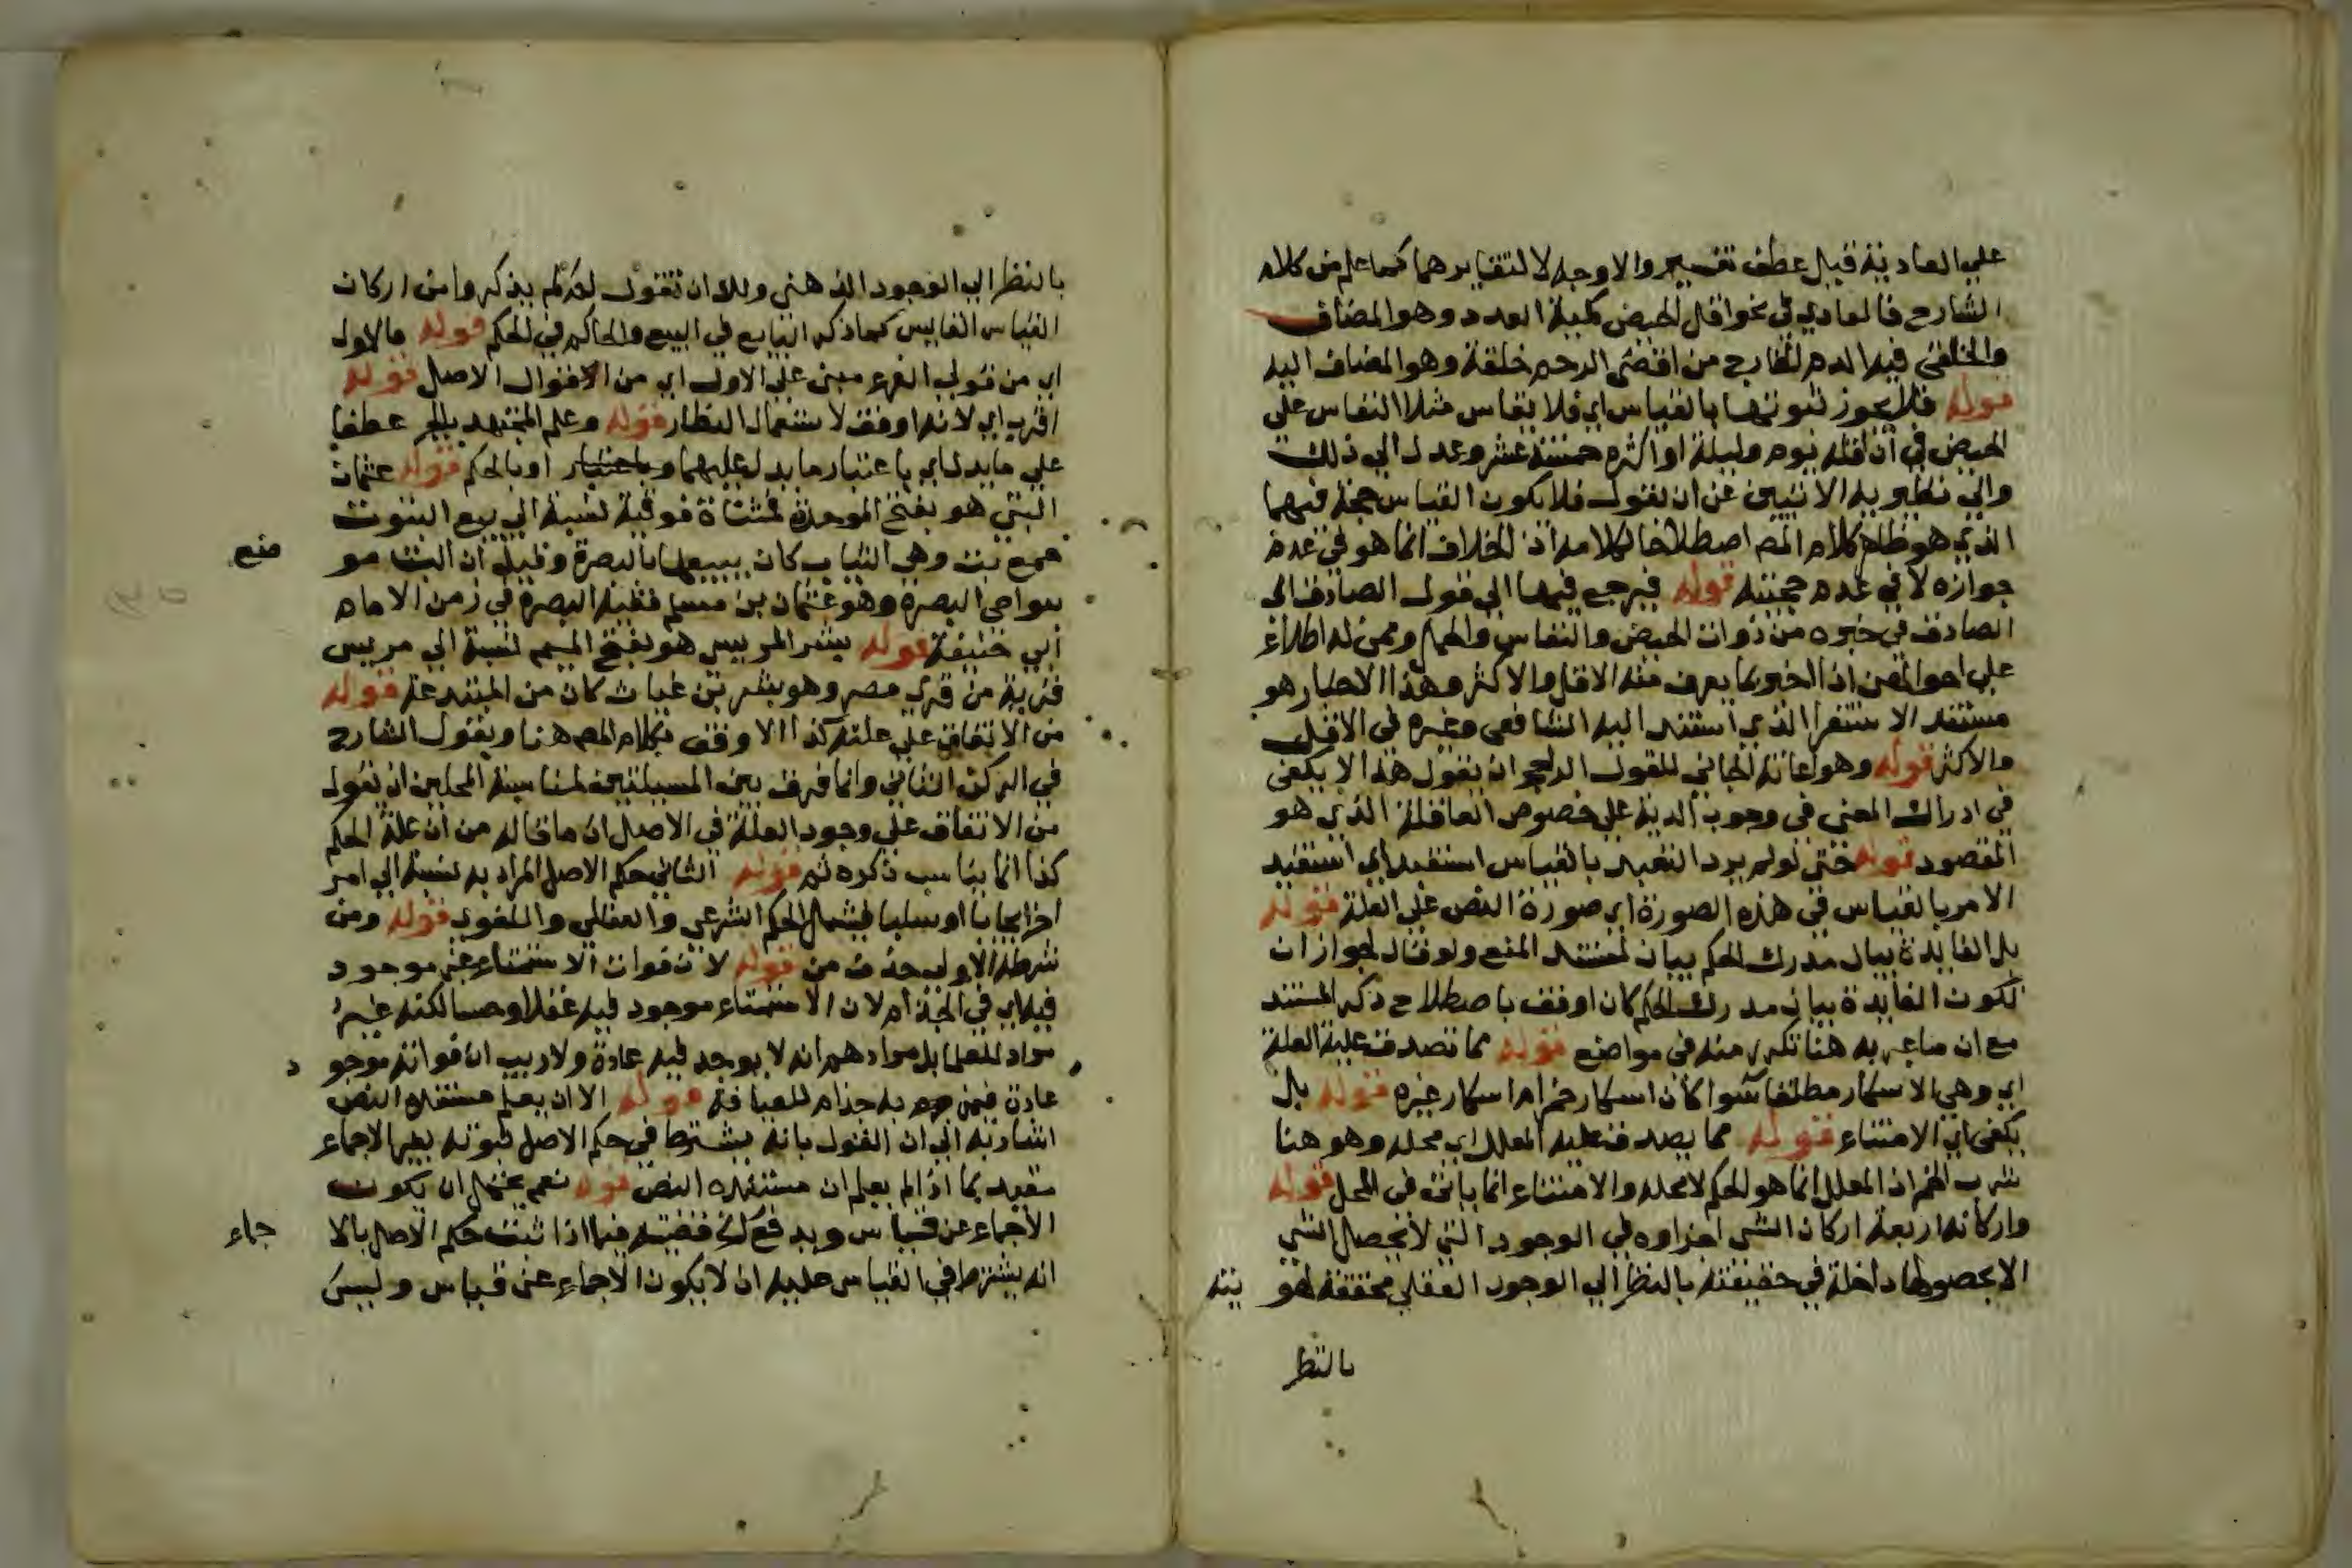 علي العادية قيل عطف تفسير والاوجه لا لتغايرهما كما علم من كلام
الشارح فالعادي في نحو اقل الحيض كمية العدد وهو المضاف
والخلقي فيه الدم الخارج من اقصى الرحم خلقة وهو المضاف اليه
قوله فلا يجوز ثبوتها بالقياس اي فلا يقاس مثلا النفاس على
الحيض في ان اقله يوم وليلة او اكثره خمسة عشر وعدل الي ذلك
والي نظيريه الاتيين عن ان يقول فلا يكون القياس حجة فيهما
الذي هو ظاهر كلام المص اصطلاحا لكلامه اذ الخلاف انما هو في عدم
جوازه لا في عدم حجيته قوله فيرجع فيها الى قول الصادق اي
الصادق في خبره من ذوات الحيض والنفاس والحمل وممن له اطلاع
علي احوالهن اذ الخبر بما يعرف منه الاقل والاكثر وهذا الاخبار هو
مستند الاستقرا الذي استند اليه الشافعي وغيره في الاقل
والاكثر قوله وهو اعانة الجاني للقول الراجح ان يقول هذا لا يكفي
في ادراك المعنى في وجوب الدية علي خصوص العاقلة الذي هو
المقصود قوله حتى لو لم يرد التعبد بالقياس استفيد اي استفيد
الامر بالقياس في هذه الصورة اي صورة النص علي العلة قوله
بل الفايدة بيان مدرك الحكم بيان لمستند المنع ولو قال لجواز ان
تكون الفايدة بيان مدرك الحكم كان اوفق باصطلاح ذكر المستند
مع ان ما عبر به هنا تكرر منه في مواضع قوله مما تصدق عليه العلة
اي وهي الاسكار مطلقا سوا كان اسكار خمر ام اسكار غيره قوله بل
يكفي اي الامتناع قوله مما يصدق عليه المعلل اي محله وهو هنا
شرب الخمر اذ المعلل انما هو الحكم لا محله والامتناع انما ياتي في المحل قوله
واركانه اربعة اركان الشي اجزاوه في الوجود التي لا يحصل الشي
الا بحصولها داخلة في حقيقته بالنظر الي الوجود العقلي محققة لهو يته
بالنظر
بالنظر الي الوجود الذهني ولك ان تقول لم لم يذكروا من اركان
القياس القايس كما ذكر البايع في البيع والحاكم في الحكم قوله فالاول
اي من قولي الفرع مبني علي الاول اي من الاقوال الاصل قوله
اقرب اي لانه اوفق لاستعمال النظار قوله وعلم المجتهد بالجر عطفا
علي ما يدل اي باعتبار ما يدل عليهما وباعتبار او بالحكم قوله عثمان
البتي هو بفتح الموحدة فمثناة فوقية نسبة الي بيع البتوت
جمع بت وهي الثياب كان يبيعها بالبصرة وقيل ان البت مو ضع
بنواحي البصرة وهو عثمان بن مسلم فقيه البصرة في زمن الامام
ابي حنيفة قوله بشر المريسي هو بفتح الميم نسبة الي مريس
قرية من قري مصر وهو بشر بن غياث كان من المبتدعة قوله
من الاتفاق علي علته كذا الاوفق بكلام المص هنا وبقول الشارح
في الركن الثاني وانما فرق بين المسيلتين لمناسبة المحلين ان يقول
من الاتفاق علي وجود العلة في الاصل ان ما قاله من ان علة الحكم
كذا انما يناسب ذكره ثم قوله الثاني حكم الاصل المراد به نسبة الي امر
اخر ايجابا او سلبا فيشمل الحكم الشرعي والعقلي واللغوي قوله ومن
شرطه الاول حذف من قوله لان فوات الاستمتاع غير موجود
فيه اي في الجب ام لان الاستمتاع موجود فيه عقلا وحسا لكنه غير
مراد للعلما بل مرادهم انه لا يوجد فيه عادة ولا ريب ان فواته موجو د
عادة فيمن به جذام للعيافة قوله الا ان يعلم مستنده النص
اشار به الي ان القول بانه يشترط في حكم الاصل ثبوته بغير الاجماع
مقيد بما اذا لم يعلم ان مستنده النص قوله نعم يحتمل ان يكون
الاجماع عن قياس ويدفع قضيته فيما اذا ثبت حكم الاصل بالا جماع
انه يشترط في القياس عليه ان لا يكون الاجماع عن قياس وليس